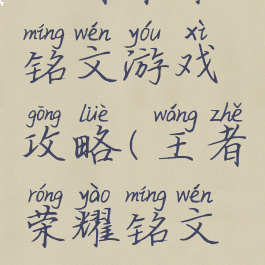 míng wén yóu xì
铭文游戏
gōng lüè wáng zhě
攻略(王者
róng yào míng wén
荣耀铭文